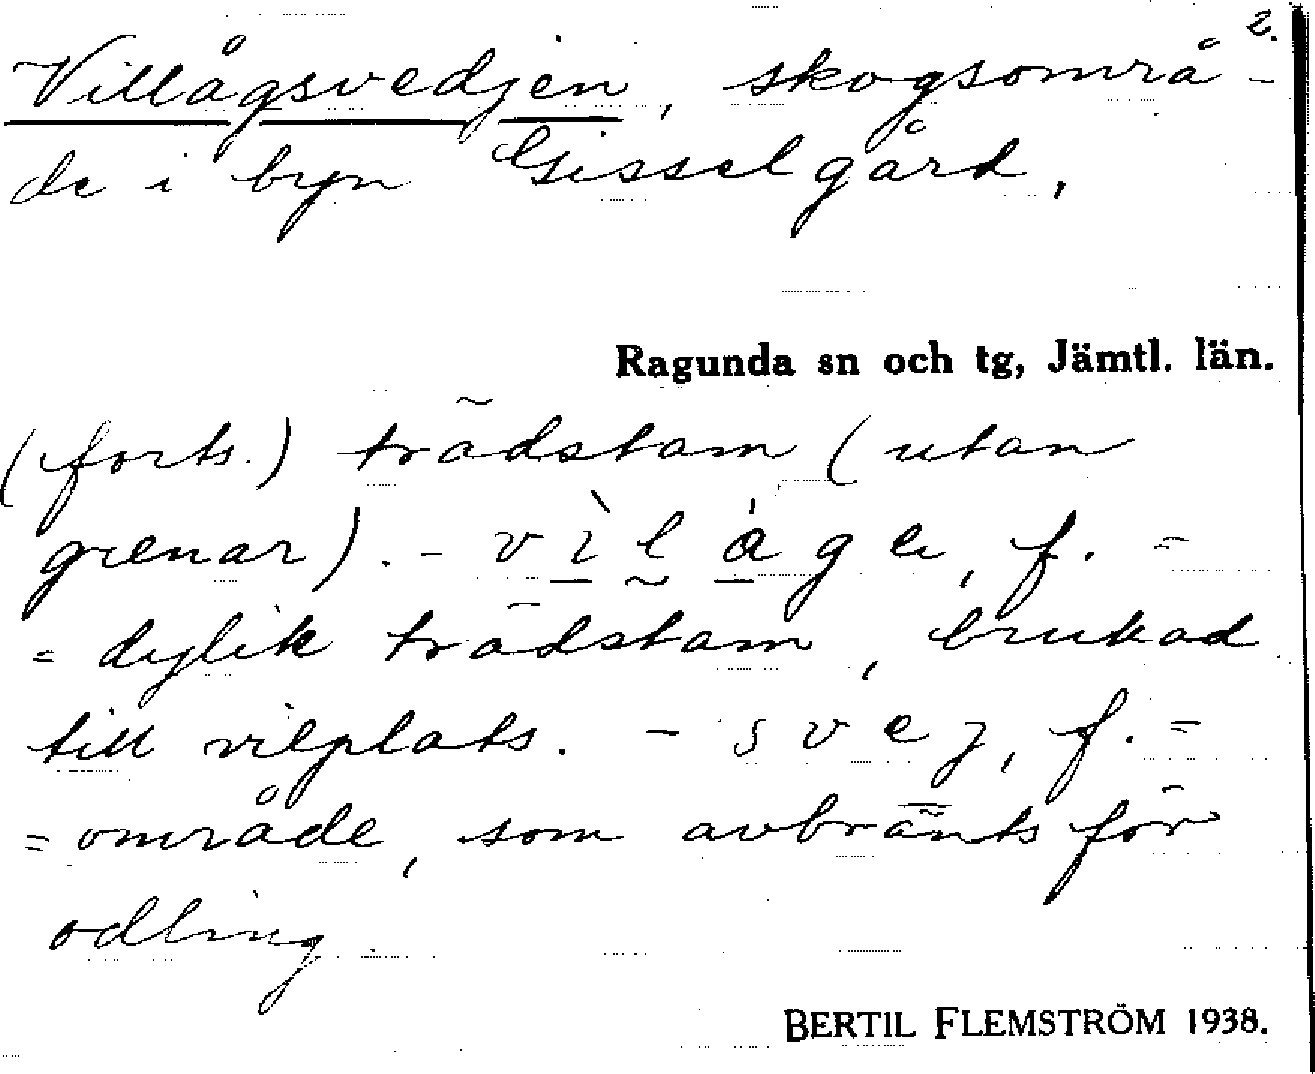 2.
Villågsvedjen, skogsområ-
de i byn Gisselgård,
Ragunda sn och tg, Jämtl. län.
(forts.) trädstam (utan
grenar). - vìlåge, f. =
= dylik trädstam, brukad
till vilplats. - svej, f. =
= område, som avbränts för
odling.
BERTIL FLEMSTRÖM 1938.